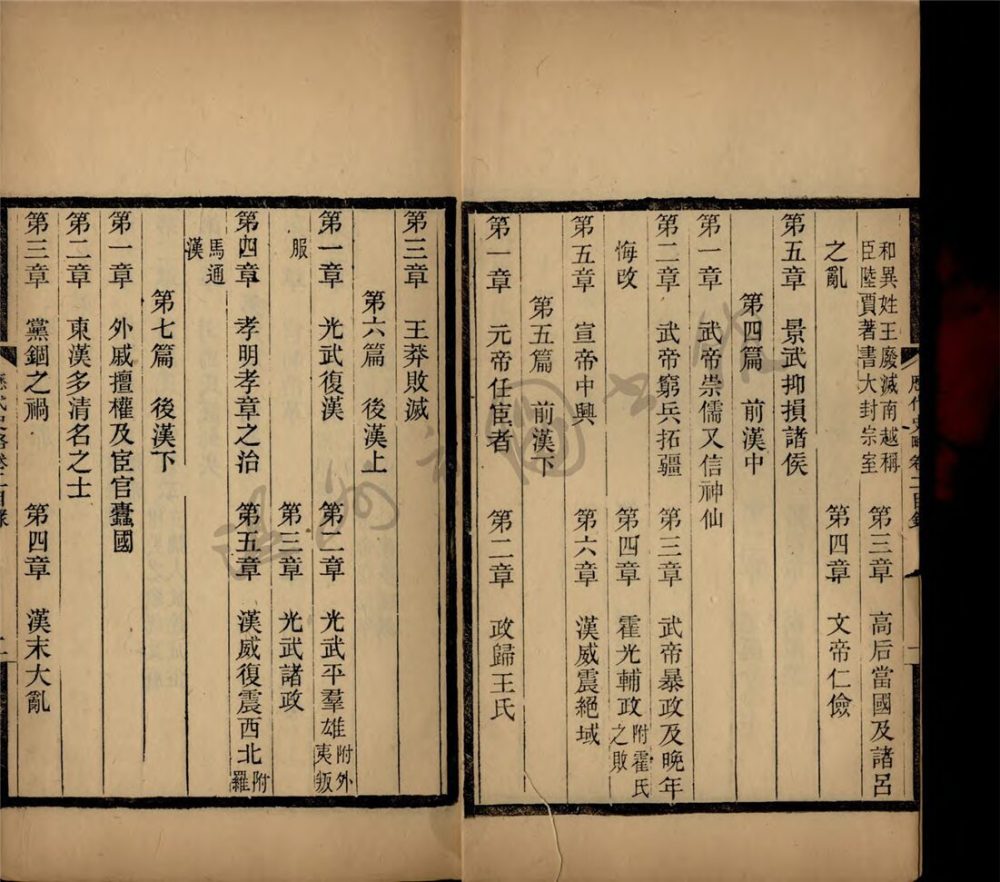 和異姓王廢滅南越稱臣陸賈著書大封宗室 第三章 高后當國及諸呂
之亂 第四章 文帝仁儉
第五章 景武抑損諸侯
第四篇 前漢中
第一章 武帝崇儒又信神仙
第二章 武帝窮兵拓疆 第三章 武帝暴政及晚年
悔改 第四章 霍光輔政附霍氏之敗
第五章 宣帝中興 第六章 漢威震絕域
第五篇 前漢下
第一章 元帝任宦者 第二章 政歸王氏
第三章 王莽敗滅
第六篇 後漢上
第一章 光武復漢 第二章 光武平羣雄附外夷叛
服 第三章 光武諸政
第四章 孝明孝章之治 第五章 漢威復震西北附羅
馬通漢
第七篇 後漢下
第一章 外戚擅權及宦官蠹國
第二章 東漢多清名之士
第三章 黨錮之禍 第四章 漢末大亂
歷代史略卷二目錄